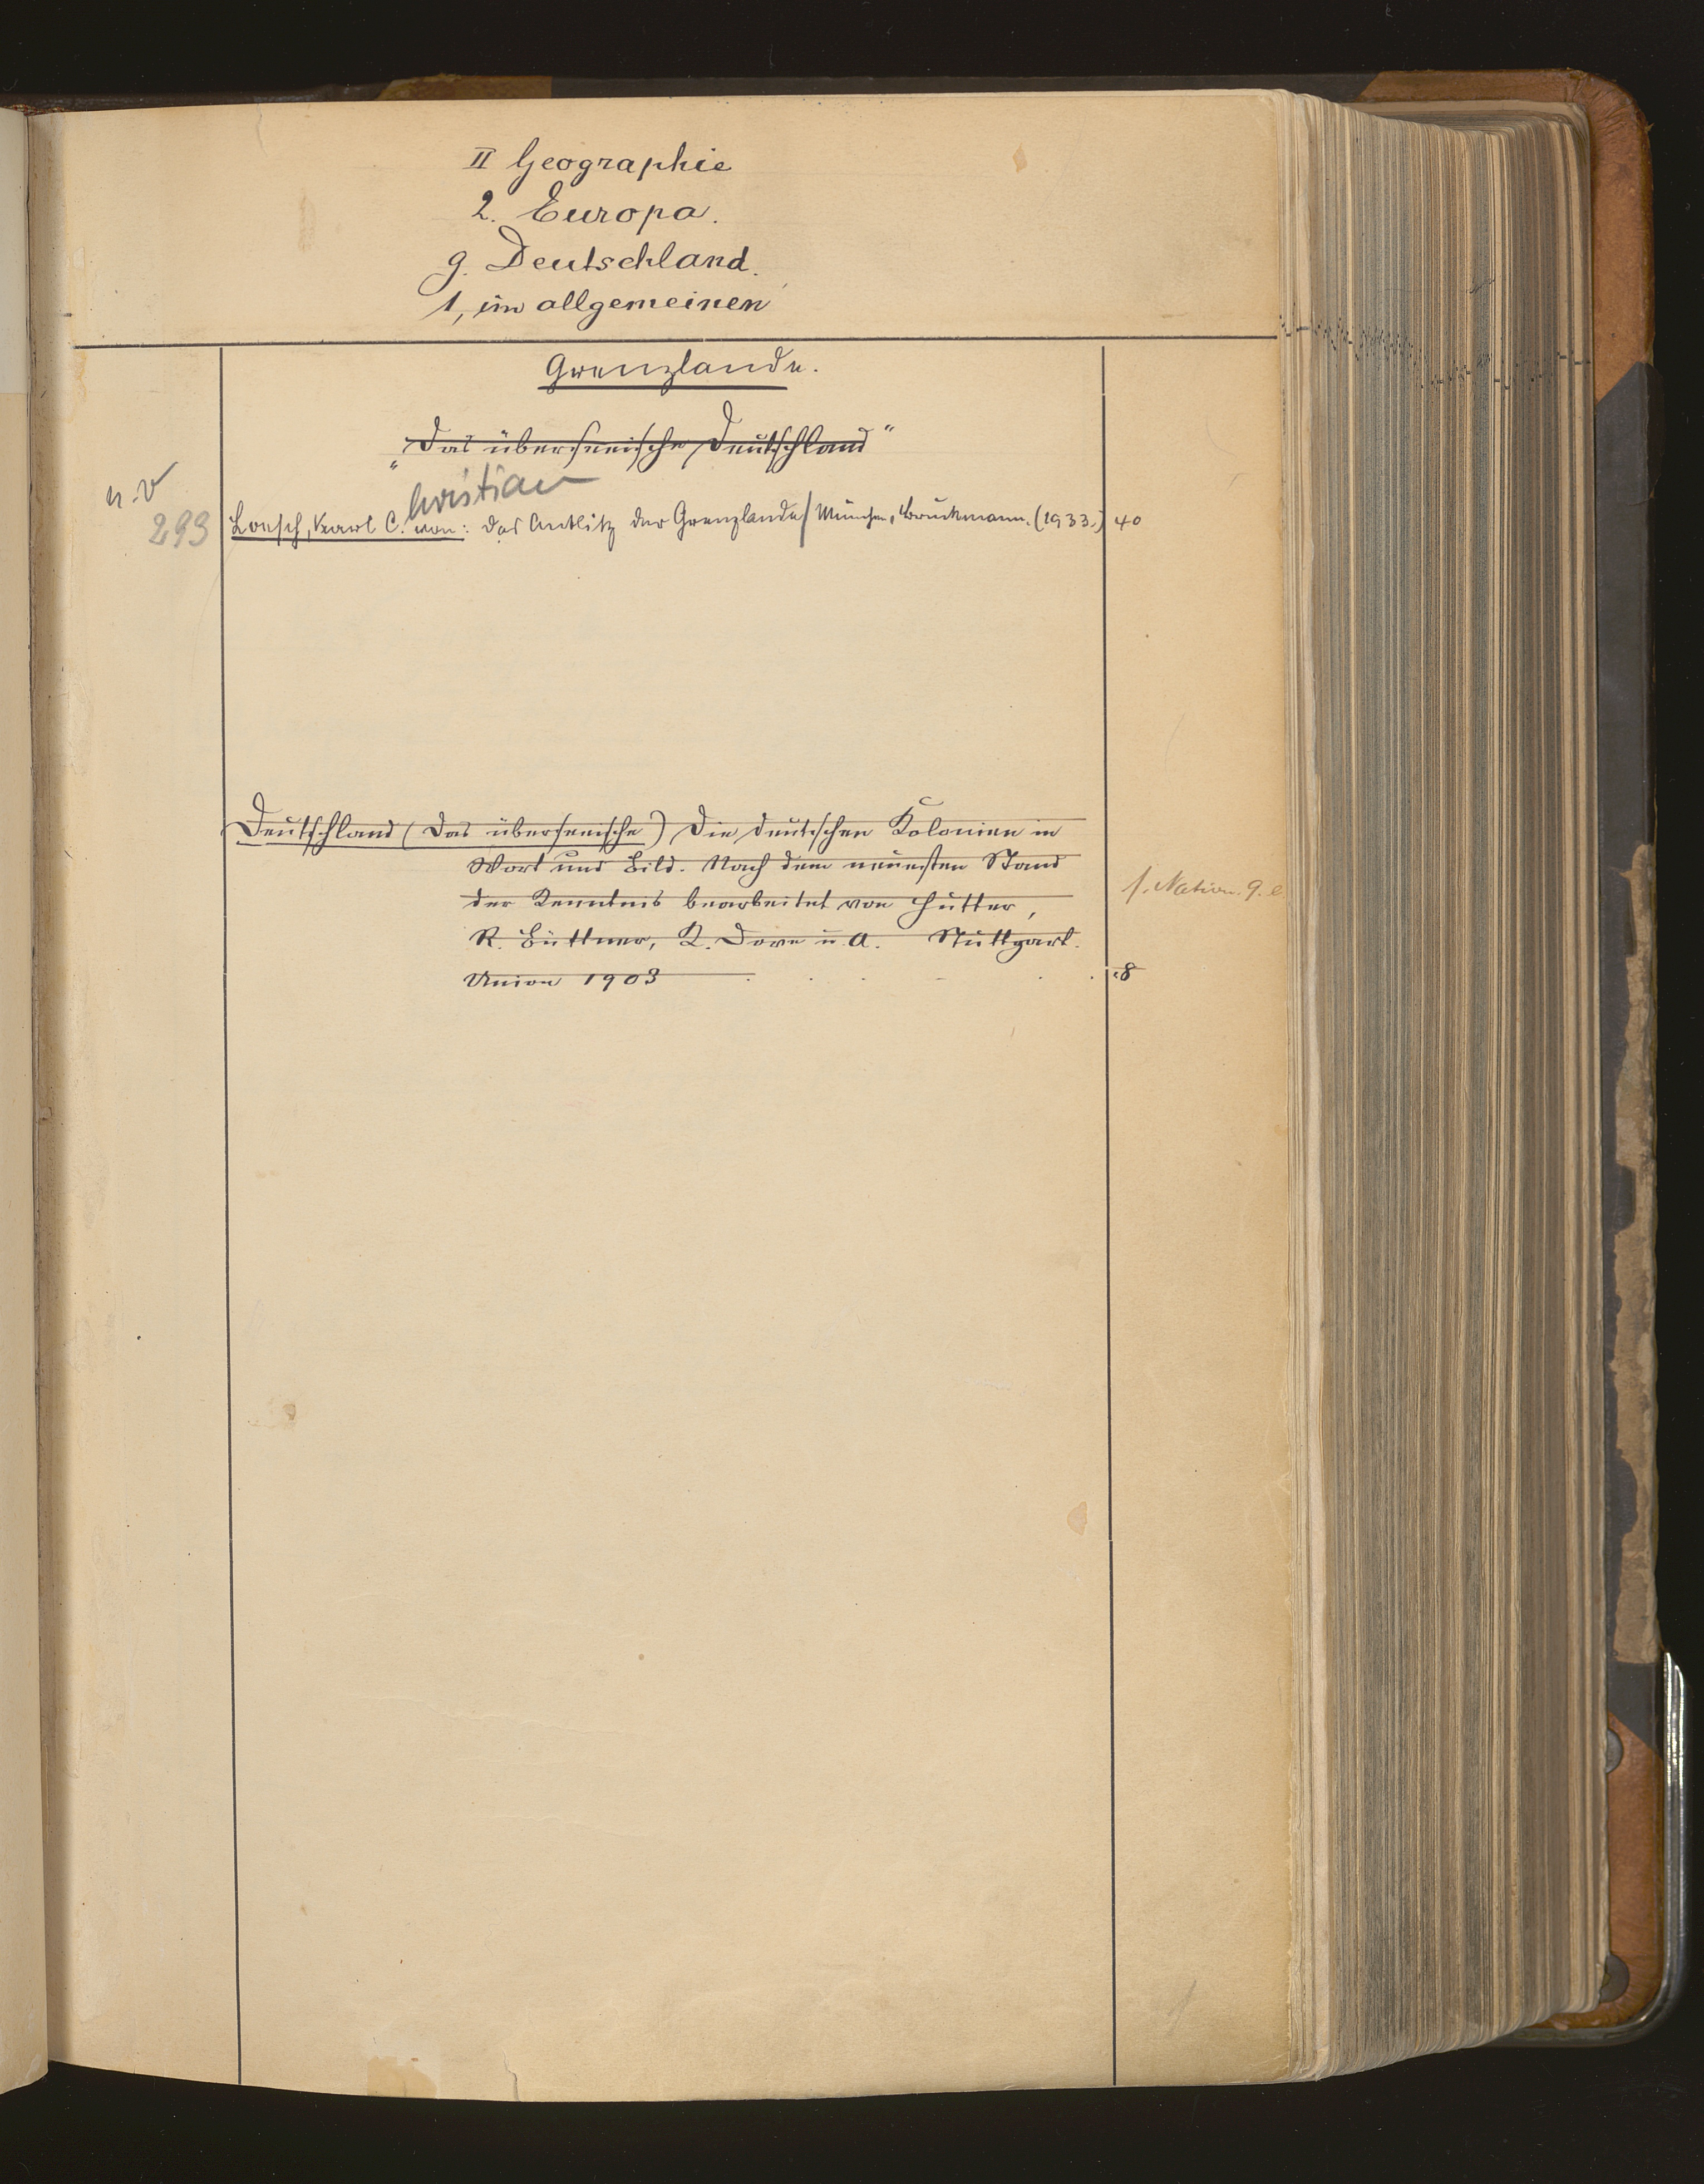 II Geographie
2. Europa.
g. Deutschland.
1, im allgemeinen
Grenzlande.
"Das überseeische Deutschland"
n. v
christian
293 Loesch, Karl C. von: Das Antlitz der Grenzlande/ München, Bruckmann. (1933.) 40
Deutschland (Das überseeische) Die deutschen Kolonien in
Wort und Bild. Nach dem neuesten Stand
der Kenntnis bearbeitet von Hutter,
R. Büttner, K. Dove u. A. Stuttgart.
Union 1903 . . . . . 8
s. Nation. g. e